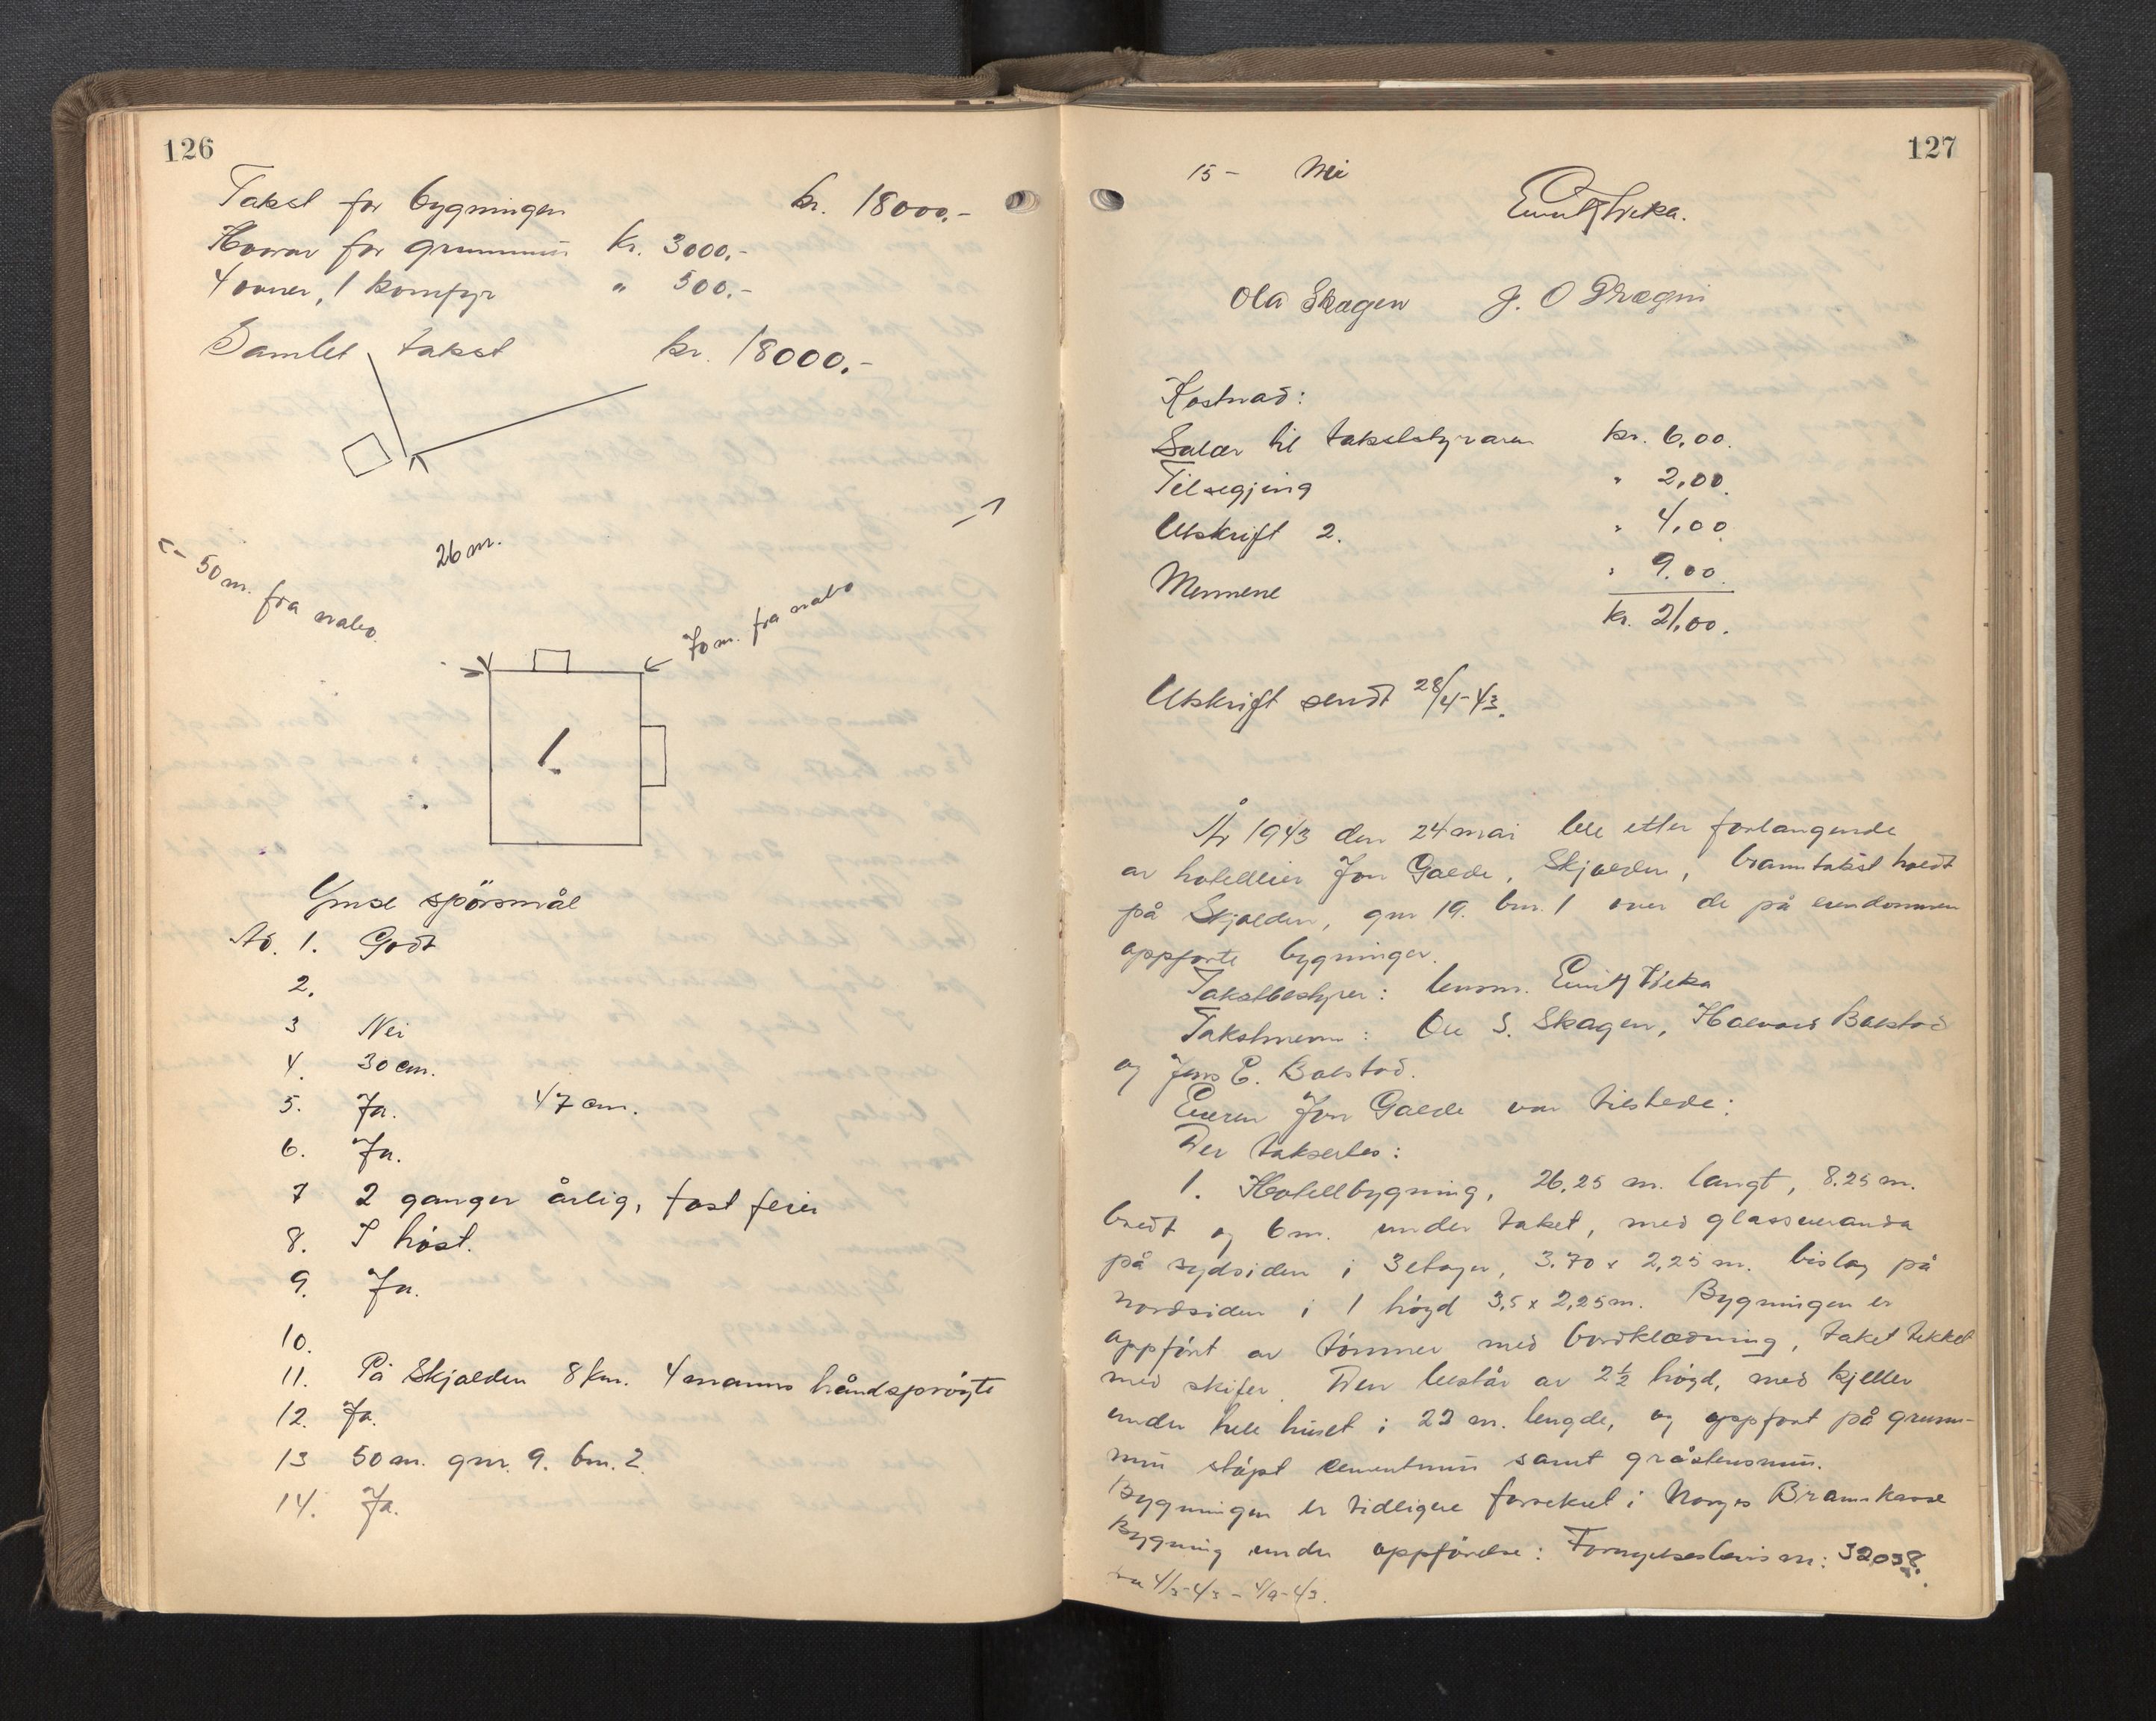 126
Takst for bygningen kr. 18000.-
Hvorav for grunnmur kr. 3000.-
4 ovner, 1 komfyr " 500.-
Samlet takst kr. 18000.-
26 m.
50 m. fra nabo
70 m. fra nabo
1.
Ymse spörsmål
Ad. 1. Godt
2.
3 Nei
4. 30 cm.
5. Ja. 47 cm.
6. Ja.
7 2 ganger årlig, fast feier
8. I höst.
9. Ja.
10.
11. På Skjolden 8 km. 4 manns håndspröyte
12. Ja.
13 50 m. gnr. 9. bnr. 2.
14. Ja.
127
15 - Nei
Ola Skagen J. O Drægni
Kostnad:
Salær til takststyraren kr. 6,00.
Tilsegjing " 2,00.
Utskrift 2. " 4,00.
Mennene " 9.00.
kr. 21,00.
Utskrift sendt 28/4-43.
År 1943 den 24 mai ble etter forlangende
av hotelleier Jon Galde, Skjolden, branntakst holdt
på Skjolden, gnr 19. bnr. 1 over de på eiendommen
oppførte bygninger.
Takstbestyrer: lensm.
Takstmenn: Ole S. Skagen, Halvard Bolstad
og Jens E. Bolstad.
Eieren Jon Galde var tilstede:
Der taksertes:
1. Hotellbygning, 26,25 m. langt, 8.25 m.
bredt og 6 m. under taket, med glassveranda
på sydsiden i 3 etager, 3.70 x 2,25 m. bislag på
nordsiden i 1 höyd 3,5 x 2,25 m. Bygningen er
oppfört av tömmer med bordklædning, taket tekket
med skifer. Den består av 2½ höyd, med kjeller
under hele huset i 22 m. lengde, og oppfört på grunn-
mur stöpt cementmur samt gråstensmur.
Bygningen er tidligere forsikret i Norges Brannkasse
Bygning under oppförelse: Fornyelsesbevis nr: 32038.
4/3-43 - 4/9-43.